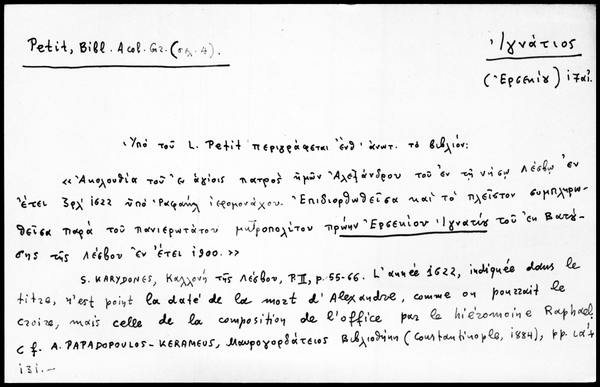 Petit, Bibl. Acol. Gr. (σελ. 4).
Ἰγνάτιος
(Ἐρσεκίου) ιζαί.
Ὑπὸ τοῦ L. Petit περιγράφεται ἔνθ' ἀνωτ. τὸ βιβλίον:
«Ἀκολουθία τοῦ ἐν ἁγίοις πατρὸς ἡμῶν Ἀλεξάνδρου τοῦ ἐν τῇ νήσῳ Λέσβῳ ἐν
ἔτει ͵ζρλ' 1622 ὑπὸ Ῥαφαὴλ ἱερομονάχου. Ἐπιδιορθωθεῖσα καὶ τὸ πλεῖστον συμπληρω-
θεῖσα παρὰ τοῦ πανιερωτάτου μητροπολίτου πρώην Ἐρσεκίου Ἰγνατίου τοῦ ἐκ Βατού-
σης τῆς Λέσβου ἐν ἔτει 1900.»
S. KARYDONES, Καλλονὴ τῆς Λέσβου, P. II, p. 55-66. L'année 1622, indiquée dans le
titre, n'est point la date de la mort d'Alexandre, comme on pourrait le
croire, mais celle de la composition de l'office par le hiéromoine Raphael.
cf. A. PAPADOPOULOS-KERAMEUS, Μαυρογορδάτειος Βιβλιοθήκη (Constantinople, 1884), pp.
131.—